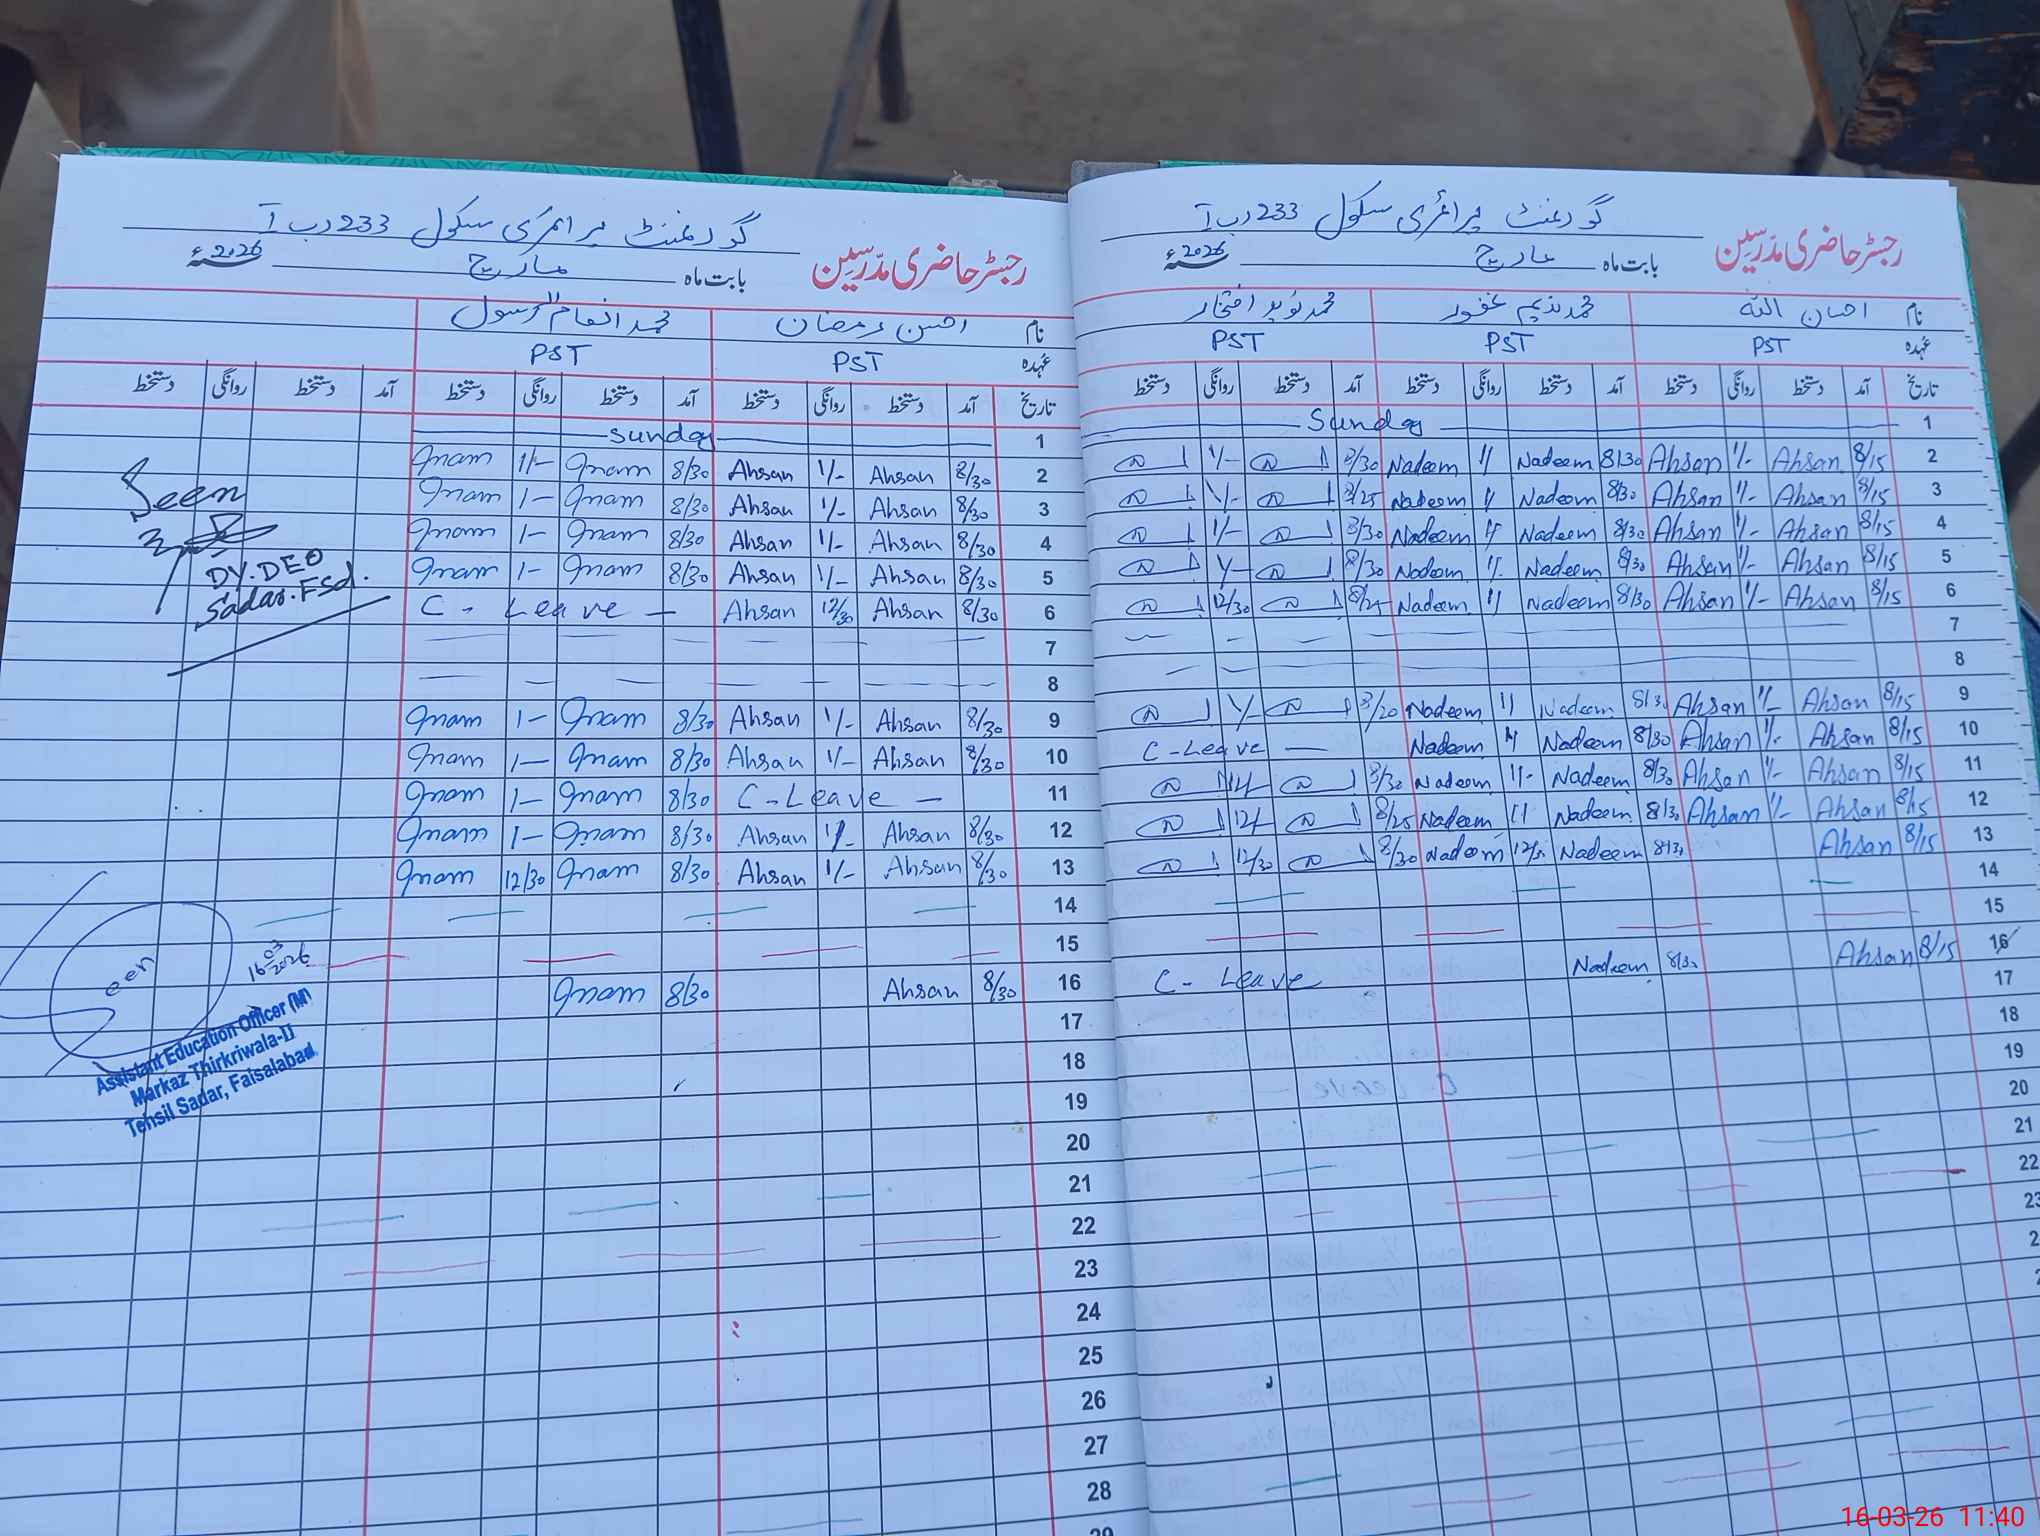 گورنمنٹ پرائمری سکول 233 رب آ
رجسٹر حاضری مدرسین
بابت ماہ مارچ 2026ء
نام احسان اللہ محمد ندیم غفور محمد نوید افتخار
عہدہ PST PST PST
تاریخ آمد دستخط روانگی دستخط آمد دستخط روانگی دستخط آمد دستخط روانگی دستخط
1 Sunday
2 8/15 Ahsan 1/- Ahsan 8/30 Nadeem 1/ Nadeem 8/30 1/-
3 8/15 Ahsan 1/- Ahsan 8/30 Nadeem 1/ Nadeem 8/25 1/-
4 8/15 Ahsan 1/- Ahsan 8/30 Nadeem 1/ Nadeem 8/30 1/-
5 8/15 Ahsan 1/- Ahsan 8/30 Nadeem 1/ Nadeem 8/30 1/-
6 8/15 Ahsan 1/- Ahsan 8/30 Nadeem 1/ Nadeem 8/25 12/30
7
8
9 8/15 Ahsan 1/- Ahsan 8/30 Nadeem 1/ Nadeem 8/20 1/-
10 8/15 Ahsan 1/- Ahsan 8/30 Nadeem 1/ Nadeem C-Leave
11 8/15 Ahsan 1/- Ahsan 8/30 Nadeem 1/- Nadeem 8/30
12 8/15 Ahsan 1/- Ahsan 8/30 Nadeem 1/ Nadeem 8/25 12/
13 8/15 Ahsan 8/30 Nadeem Nadeem 8/30 12/30
14
15
16 8/15 Ahsan 8/30 Nadeem C-Leave
17
18
19
20
21
22
23
گورنمنٹ پرائمری سکول 233 رب آ
رجسٹر حاضری مدرسین
بابت ماہ مارچ 2026ء
نام احسن رمضان محمد انعام الرسول
عہدہ PST PST
تاریخ آمد دستخط روانگی دستخط آمد دستخط روانگی دستخط آمد دستخط روانگی دستخط
1 Sunday
2 8/30 Ahsan 1/- Ahsan 8/30 Inam 1/- Inam
3 8/30 Ahsan 1/- Ahsan 8/30 Inam 1- Inam
4 8/30 Ahsan 1/- Ahsan 8/30 Inam 1- Inam
5 8/30 Ahsan 1/- Ahsan 8/30 Inam 1- Inam
6 8/30 Ahsan 12/30 Ahsan C-Leave
7
8
9 8/30 Ahsan 1/- Ahsan 8/30 Inam 1- Inam
10 8/30 Ahsan 1/- Ahsan 8/30 Inam 1- Inam
11 C-Leave 8/30 Inam 1- Inam
12 8/30 Ahsan 1/- Ahsan 8/30 Inam 1- Inam
13 8/30 Ahsan 1/- Ahsan 8/30 Inam 12/30 Inam
14
15
16 8/30 Ahsan 8/30 Inam
17
18
19
20
21
22
23
24
25
26
27
28
Seen
DY.DEO
Sadar.Fsd.
Seen
16/03/2026
Assistant Education Officer (M)
Markaz Thirkriwala-II
Tehsil Sadar, Faisalabad
16-03-26 11:40